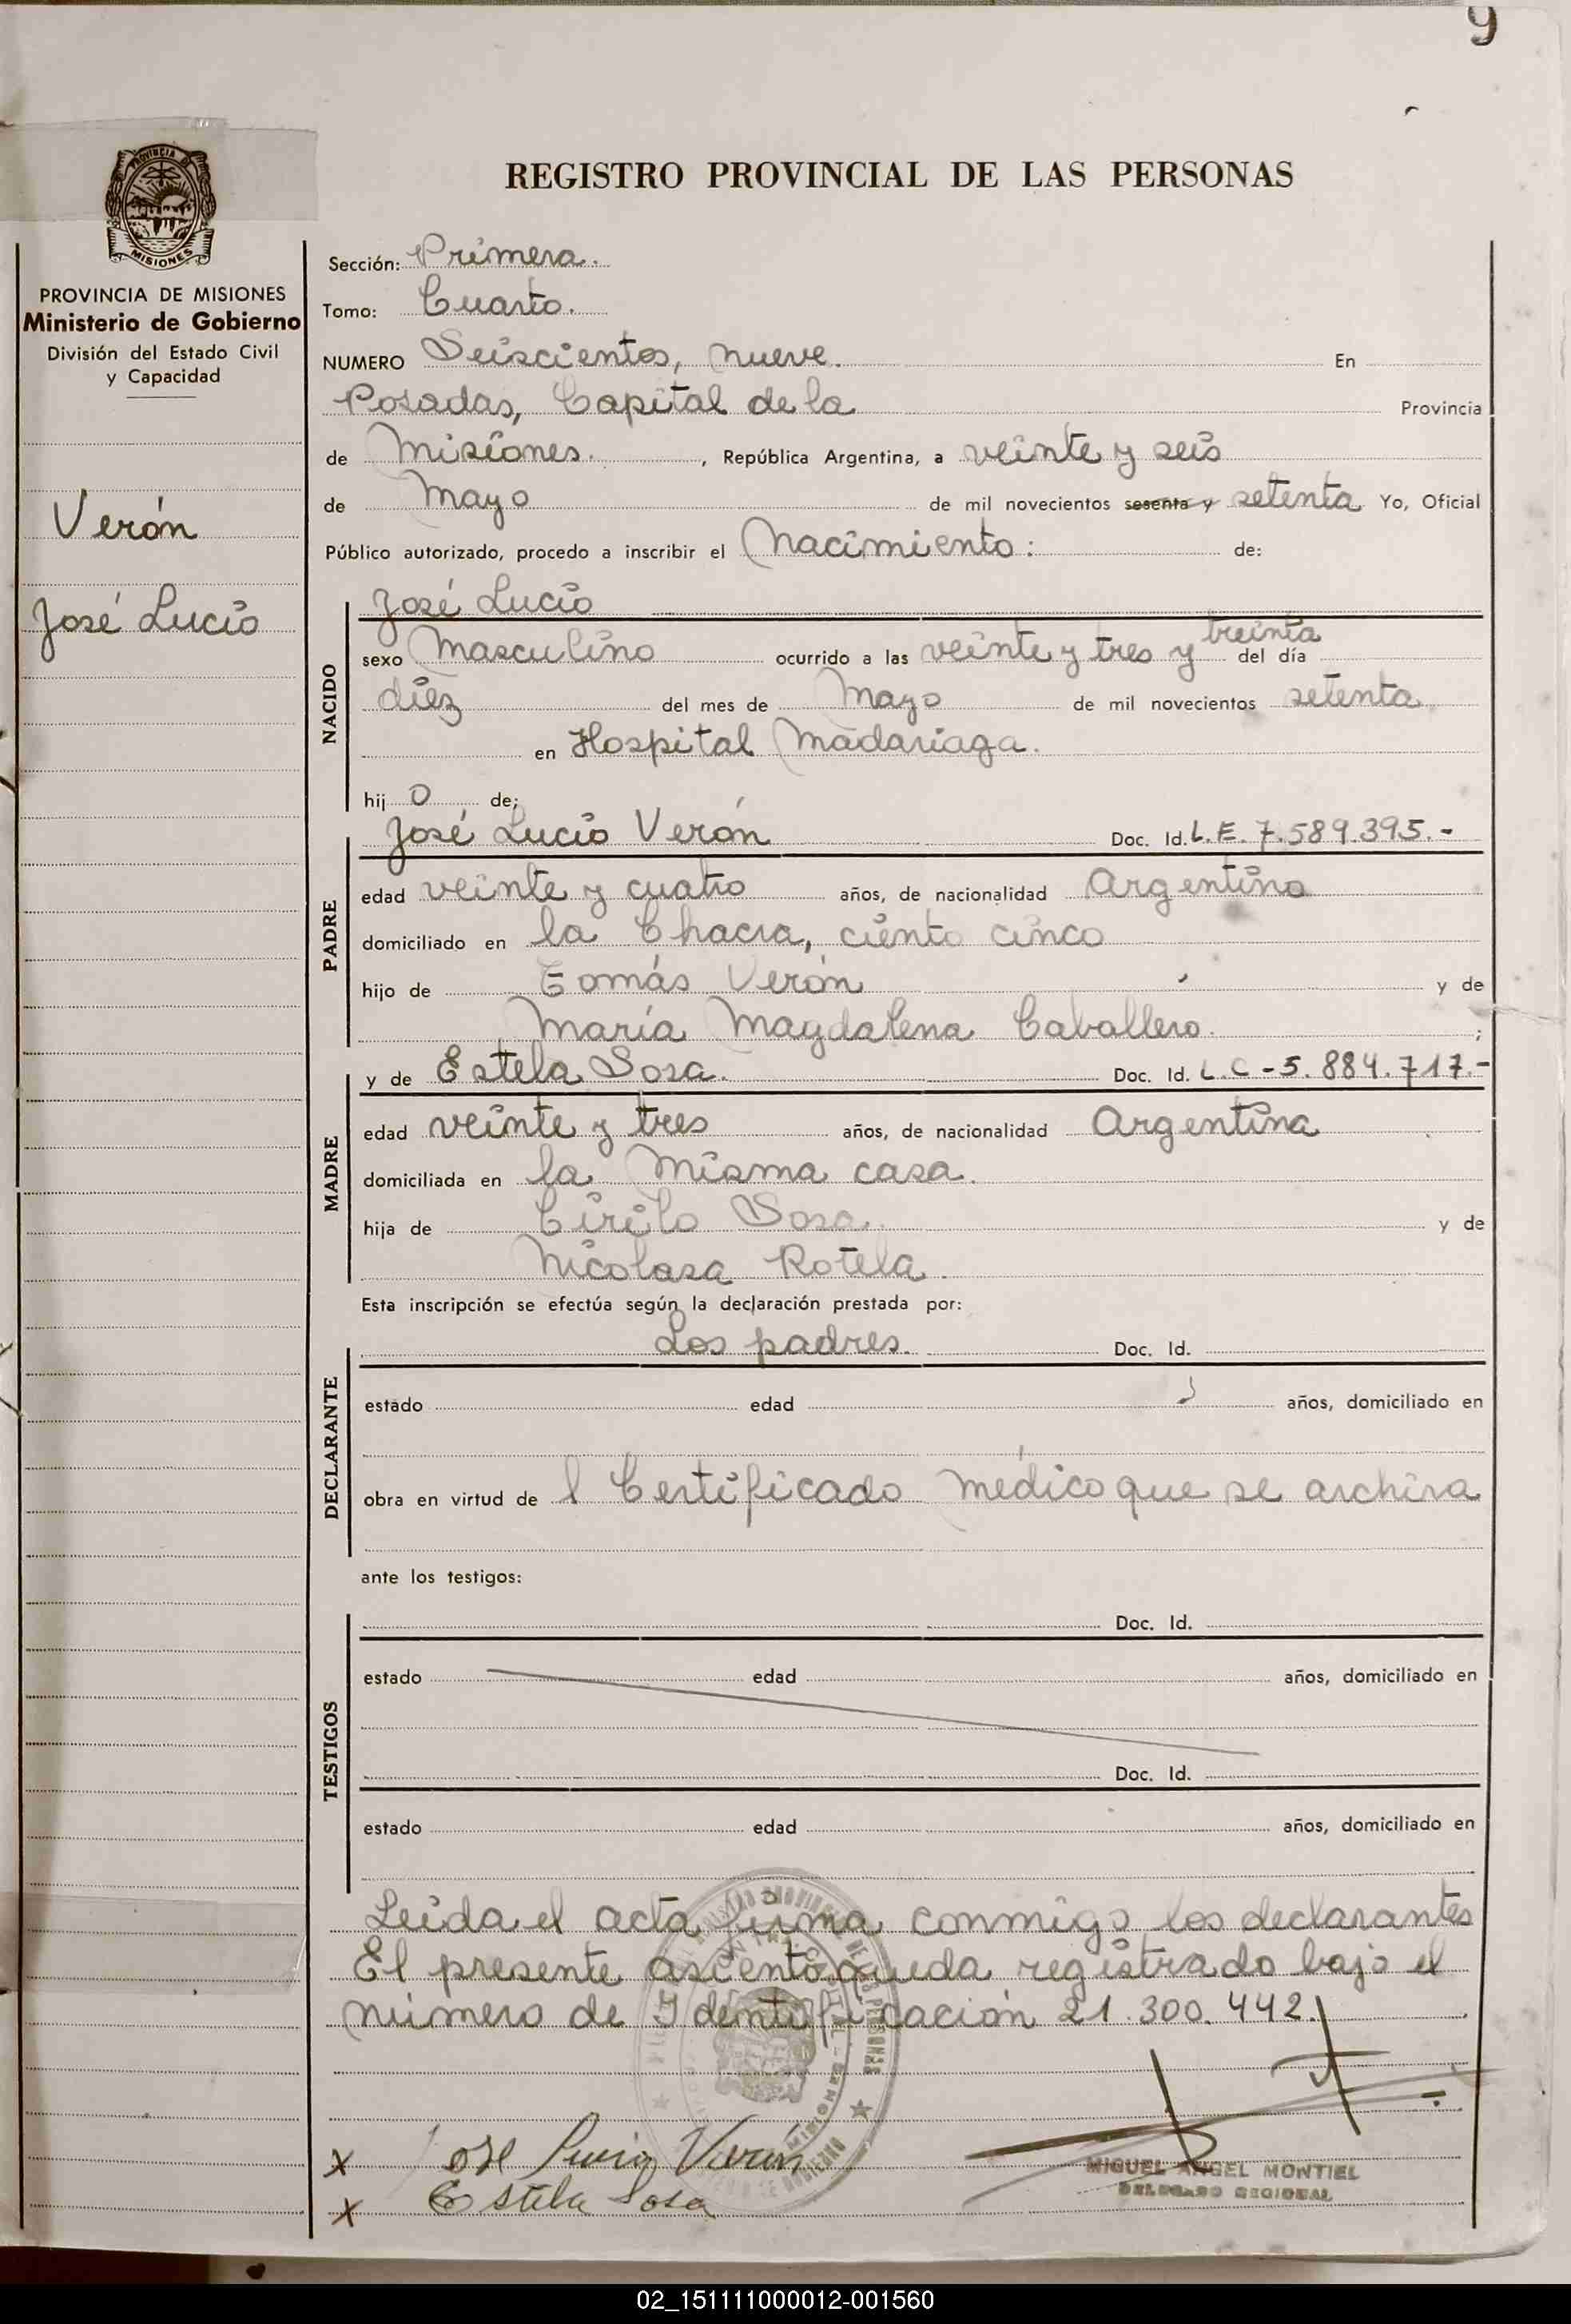 9
REGISTRO PROVINCIAL DE LAS PERSONAS
PROVINCIA DE MISIONES
Ministerio de Gobierno
División del Estado Civil
y Capacidad
Verón
José Lucio
Sección: Primera.
Tomo: Cuarto.
NUMERO Seiscientos, nueve. En
Posadas, Capital de la Provincia
de Misiones. , República Argentina, a veinte y seis
de Mayo de mil novecientos sesenta y setenta Yo, Oficial
Público autorizado, procedo a inscribir el Nacimiento: de:
José Lucio
NACIDO
treinta
sexo Masculino ocurrido a las veinte y tres y del día
diez del mes de Mayo de mil novecientos setenta
en Hospital Madariaga.
hij o de;
José Lucio Verón Doc. Id. L.E. 7.589.395.-
PADRE
edad veinte y cuatro años, de nacionalidad Argentino
domiciliado en la Chacra, ciento cinco
hijo de Tomás Verón y de
María Magdalena Caballero. ;
y de Estela Sosa. Doc. Id. L.C-5.884.717.-
MADRE
edad veinte y tres años, de nacionalidad Argentina
domiciliada en la Misma casa.
hija de Cirilo Sosa. y de
Nicolasa Rotela.
Esta inscripción se efectúa según la declaración prestada por:
Los padres. Doc. Id.
DECLARANTE
estado edad años, domiciliado en
obra en virtud de l Certificado Médico que se archiva
ante los testigos:
Doc. Id.
TESTIGOS
estado edad años, domiciliado en
Doc. Id.
estado edad años, domiciliado en
Leida el acta firma conmigo los declarantes
El presente asiento queda registrado bajo el
número de Identificación 21.300.442.
x José Lucio Verón
x Estela Sosa
MIGUEL ANGEL MONTIEL
DELEGADO REGIONAL
02_151111000012-001560